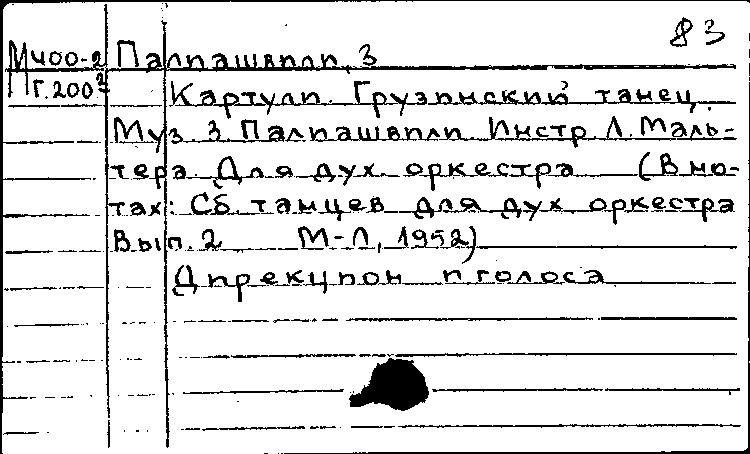 83
М400-2 Палиашвили, З
Г.200³ Картули. Грузинский танец.
Муз. З. Палиашвили. Инстр. Л. Маль-
тера. Для дух. оркестра (В но-
тах: Сб. танцев для дух оркестра
Вып. 2 М-Л, 1952)
Дирекцион и голоса